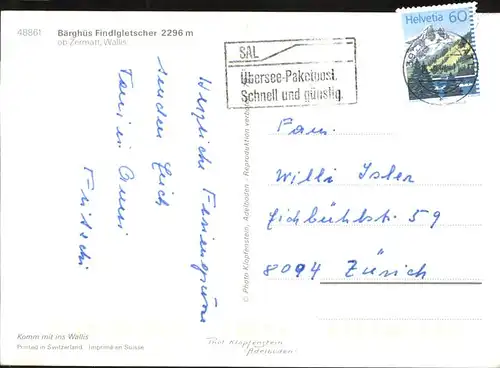 48861
Bärghüs Findlgletscher 2296 m
ob Zermatt, Wallis
SAL
Übersee-Paketpost.
Schnell und günstig.
Helvetia 60
Herzliche Feriengrüsse
senden Euch
Toni
Fritschi
Fam.
Willi Isler
Eichbühlstr. 59
8094 Zürich
© Photo Klopfenstein, Adelboden - Reproduktion verboten
Komm mit ins Wallis
Printed in Switzerland Imprimé en Suisse
Klopfenstein
Adelboden